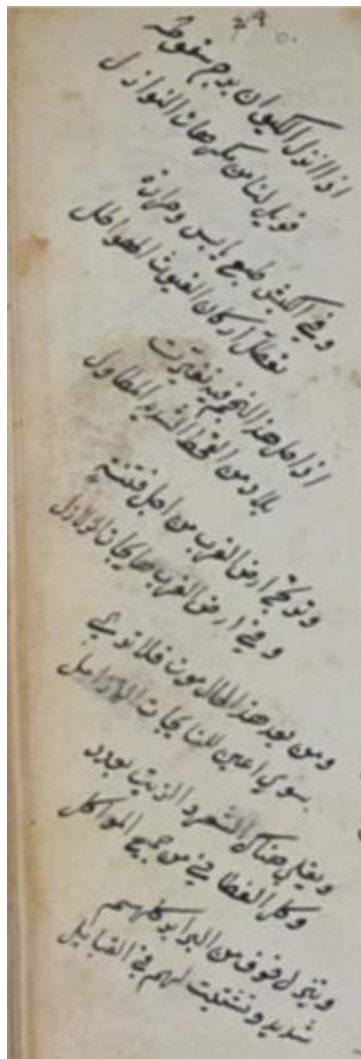 اذا انزل الكيوان برج سقوطه
فويل لنا من مكرهات النوازل
وفي الكبش طبع يابس وحرارة
تعطل اركان الغيوث الهواطل
اذا حل هذا النجم فيه تغيرت
بلاد من القحط الشديد المطاول
وتوكح ارض الغرب من اجل فتنة
وفي ارض الغرب هايجات
ومن بعد هذا المال موت فلا تري
سوي اعين النايحات الارامل
ويغلي هناك الشهد الزيت بعدد
وكل القطا في من جميع المواكل
وينزل خوف من البرابر كلهم
شديد وتشتيت لهم في القبايل